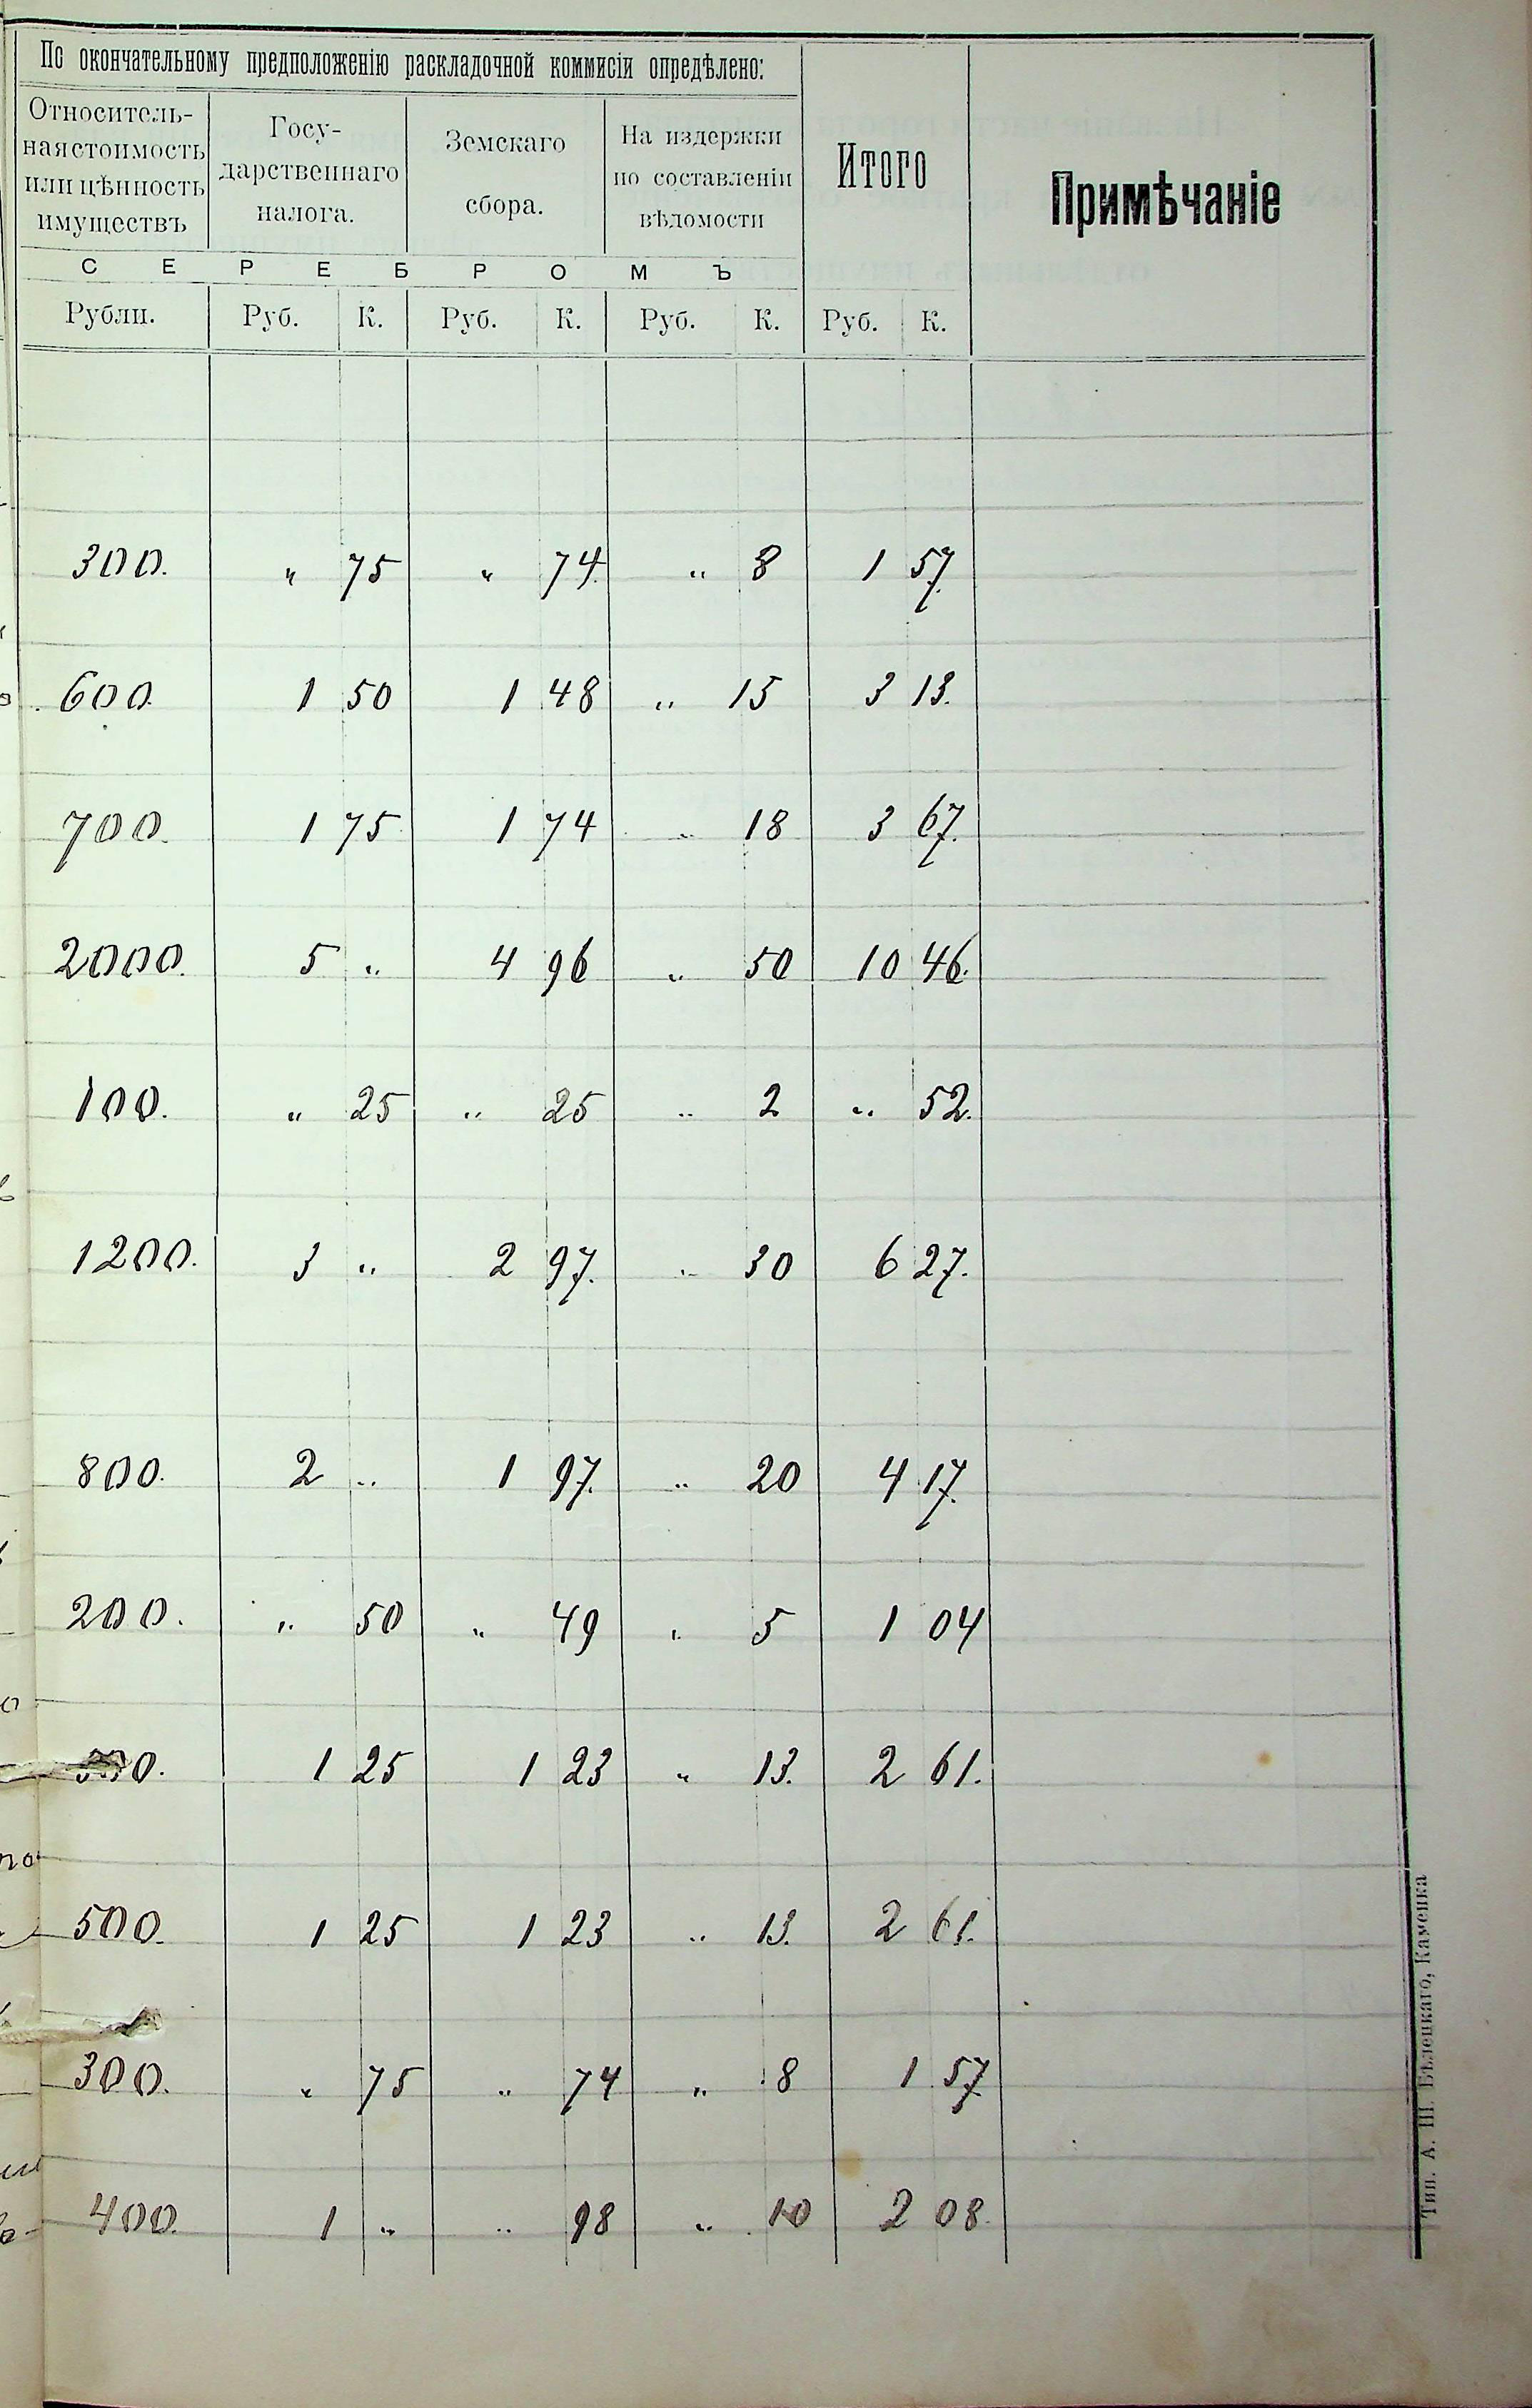 По окончательному предположенію раскладочной коммисіи опредѣлено:
Относитель-
ная стоимость
или цѣнность
имуществъ
Госу-
дарственнаго
налога.
Земскаго
сбора.
На издержки
по составленіи
вѣдомости
Итого
Примѣчаніе
С Е Р Е Б Р О М Ъ
Рубли. Руб. К. Руб. К. Руб. К. Руб. К.
300. „ 75 „ 74. „ 8 1 57.
600. 1 50 1 48 „ 15 3 13.
700. 1 75 1 74 „ 18 3 67.
2000. 5 „ 4 96 „ 50 10 46.
100. „ 25 „ 25 „ 2 „ 52.
1200. 3 „ 2 97. „ 30 6 27.
800. 2 „ 1 97. „ 20 4 17.
200. „ 50 „ 49 „ 5 1 04
1 25 1 23 „ 13. 2 61.
500. 1 25 1 23 „ 13. 2 61.
300. „ 75 „ 74 „ 8 1 57
400. 1 „ „ 98 „ 10 2 08.
Тип. А. Ш. Бѣлецкаго, Каменка